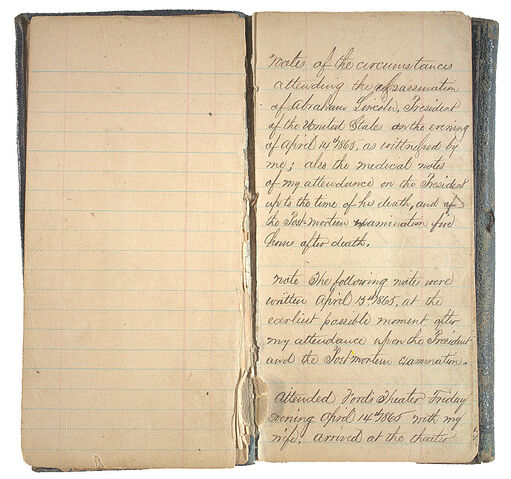 Notes of the circumstances
attending the assassination
of Abraham Lincoln, President
of the United States on the evening
of April 14th 1865, as wittnessed by
me; also the medical notes
of my attendance on the President
up to the time of his death, and of
the Post-mortem examination five
hours after death.
note The following notes were
written April 15th 1865, at the
earliest possible moment after
my attendance upon the President
and the Post mortem examination.
Attended Fords Theater Friday
evening April 14th 1865 with my
wife; arrived at the theater